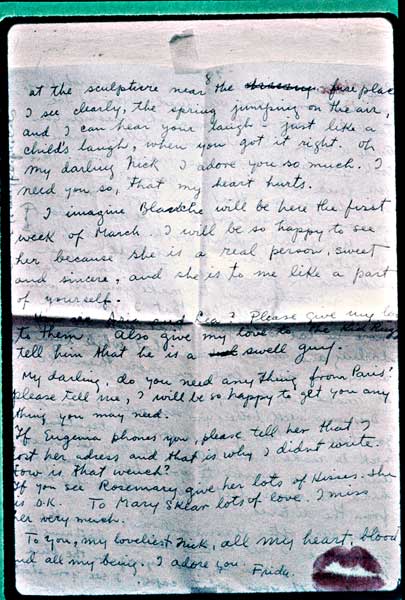 8
at the sculpture near the fireplac
I see clearly, the spring jumping on the air,
and I can hear your laugh – just like a
child's laugh, when you got it right. Oh
my darling Nick I adore you so much. I
need you so, that my heart hurts.
I imagine Blanche will be here the first
week of March. I will be so happy to see
her because she is a real person, sweet
and sincere, and she is to me like a part
of yourself.
and Cea? Please give my lov
to them. Also give my love to the Kid
tell him that he is a swell guy.
My darling, do you need anything from Paris?
Please tell me, I will be so happy to get you any
thing you may need.
If Eugenia phones you, please tell her that I
ost her adress and that is why I didnt write.
How is that wench?
If you see Rosemary give her lots of kisses. She
is O.K. To Mary Sklar lots of love. I miss
her very much.
To you, my loveliest Nick, all my heart, blood
nd all my being. I adore you. Frida.